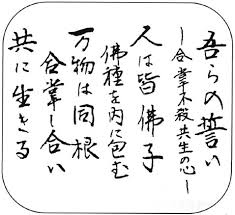 吾らの誓い
―合掌不殺共生の心―
人は皆佛子
佛種を内に包む
万物は同根
合掌し合い
共に生きる